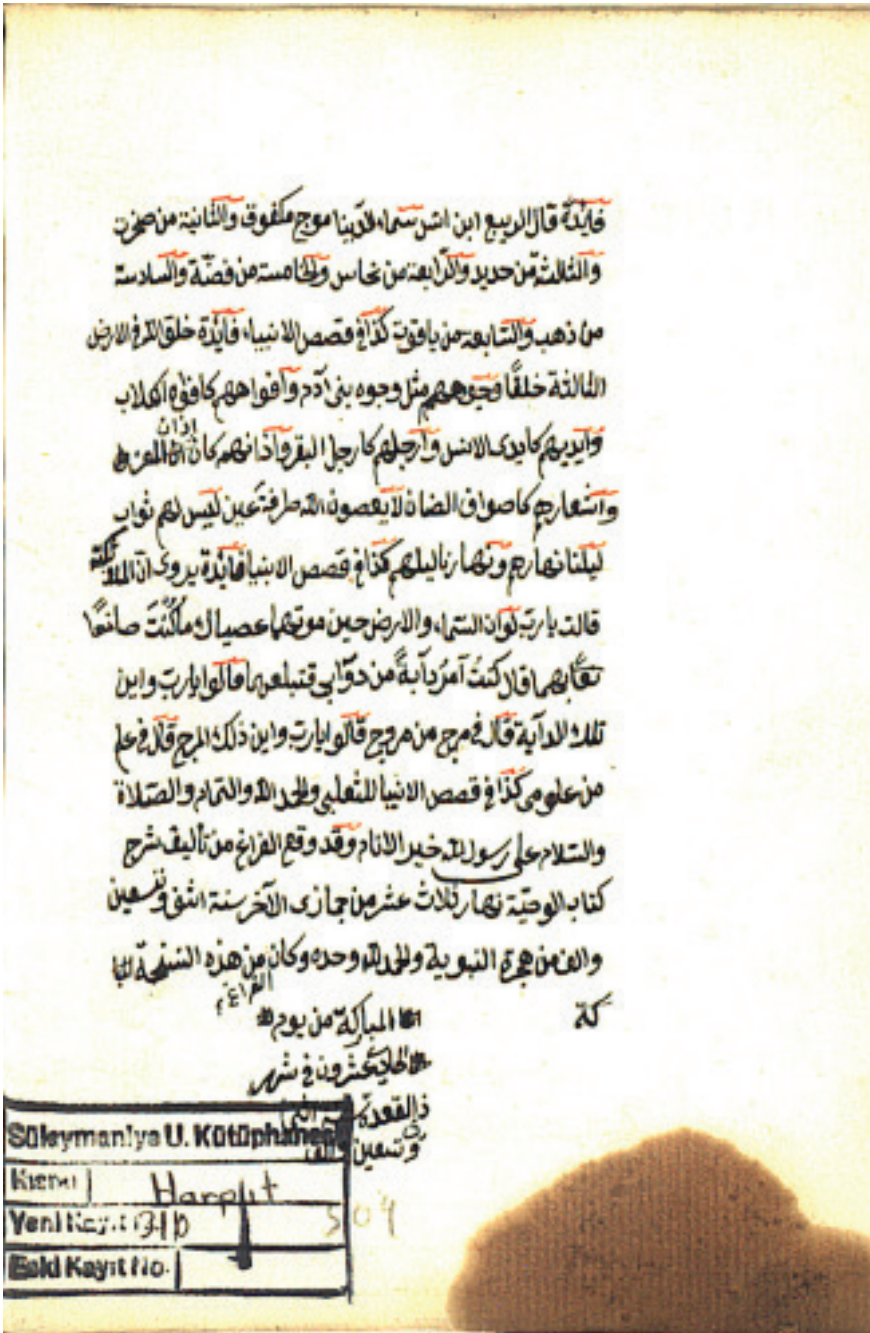 فايدة قال الربيع ابن انس سماء الدنيا موج مكفوف والثانية من صخرة
والثالثة من حديد والرابعة من نحاس والخامسة من فضة والسادسة
من ذهب والسابعة من ياقوت كذا في قصص الانبياء فايدة خلق الله في الارض
الثالثة خلقًا وجوههم مثل وجوه بنى آدم وآفواههم كافواه الكلاب
وآيديهم كايدى الانس وآرجلهم كارجل البقر وآذانهم كآذان المعز
اذان
وآشعارهم كاصواف الضان لا يعصون الله طرفة عين ليس لهم ثواب
ليلنا نهارهم ونهارنا ليلهم كذا في قصص الانبيا فايدة يروى ان الملائكة
قالت يارب لو ان السماء والارض حين موتهما عصياك ما كُنْتَ صانعًا
بهما قال كنتُ آمرُ دآبةً من دوآبى فتبلعهما قالوا يارب واين
تلك الدآبة قال في مرج من مروج قالوا يارب واين ذلك المرج قال في علم
من علومى كذا في قصص الانبيا للثعلبى والحمد لله والتمام والصلاة
والسلام على رسول الله خير الانام وقد وقع الفراغ من تأليف شرح
كتاب الوصية نهار ثلاث عشر من جمازى الآخر سنة اثنى وتسعين
والف من هجرة النبوية والحمد لله وحده وكان من هذه النسخة المبا
الفراغ
كة
المباركة من يوم
عشرون في شهر
ذالقعدة
وتسعين
Süleymaniye U. Kütüphanesi
Kısmı Harput
Yeni Kayıt No.
504
Eski Kayıt No.